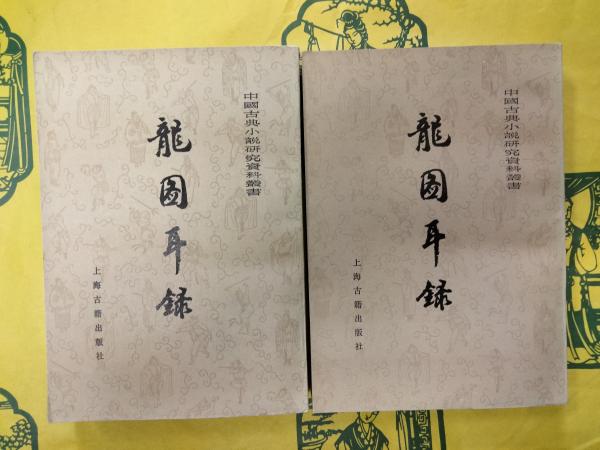 中國古典小說研究資料叢書
龍圖耳録
上海古籍出版社
中國古典小說研究資料叢書
龍圖耳録
上海古籍出版社